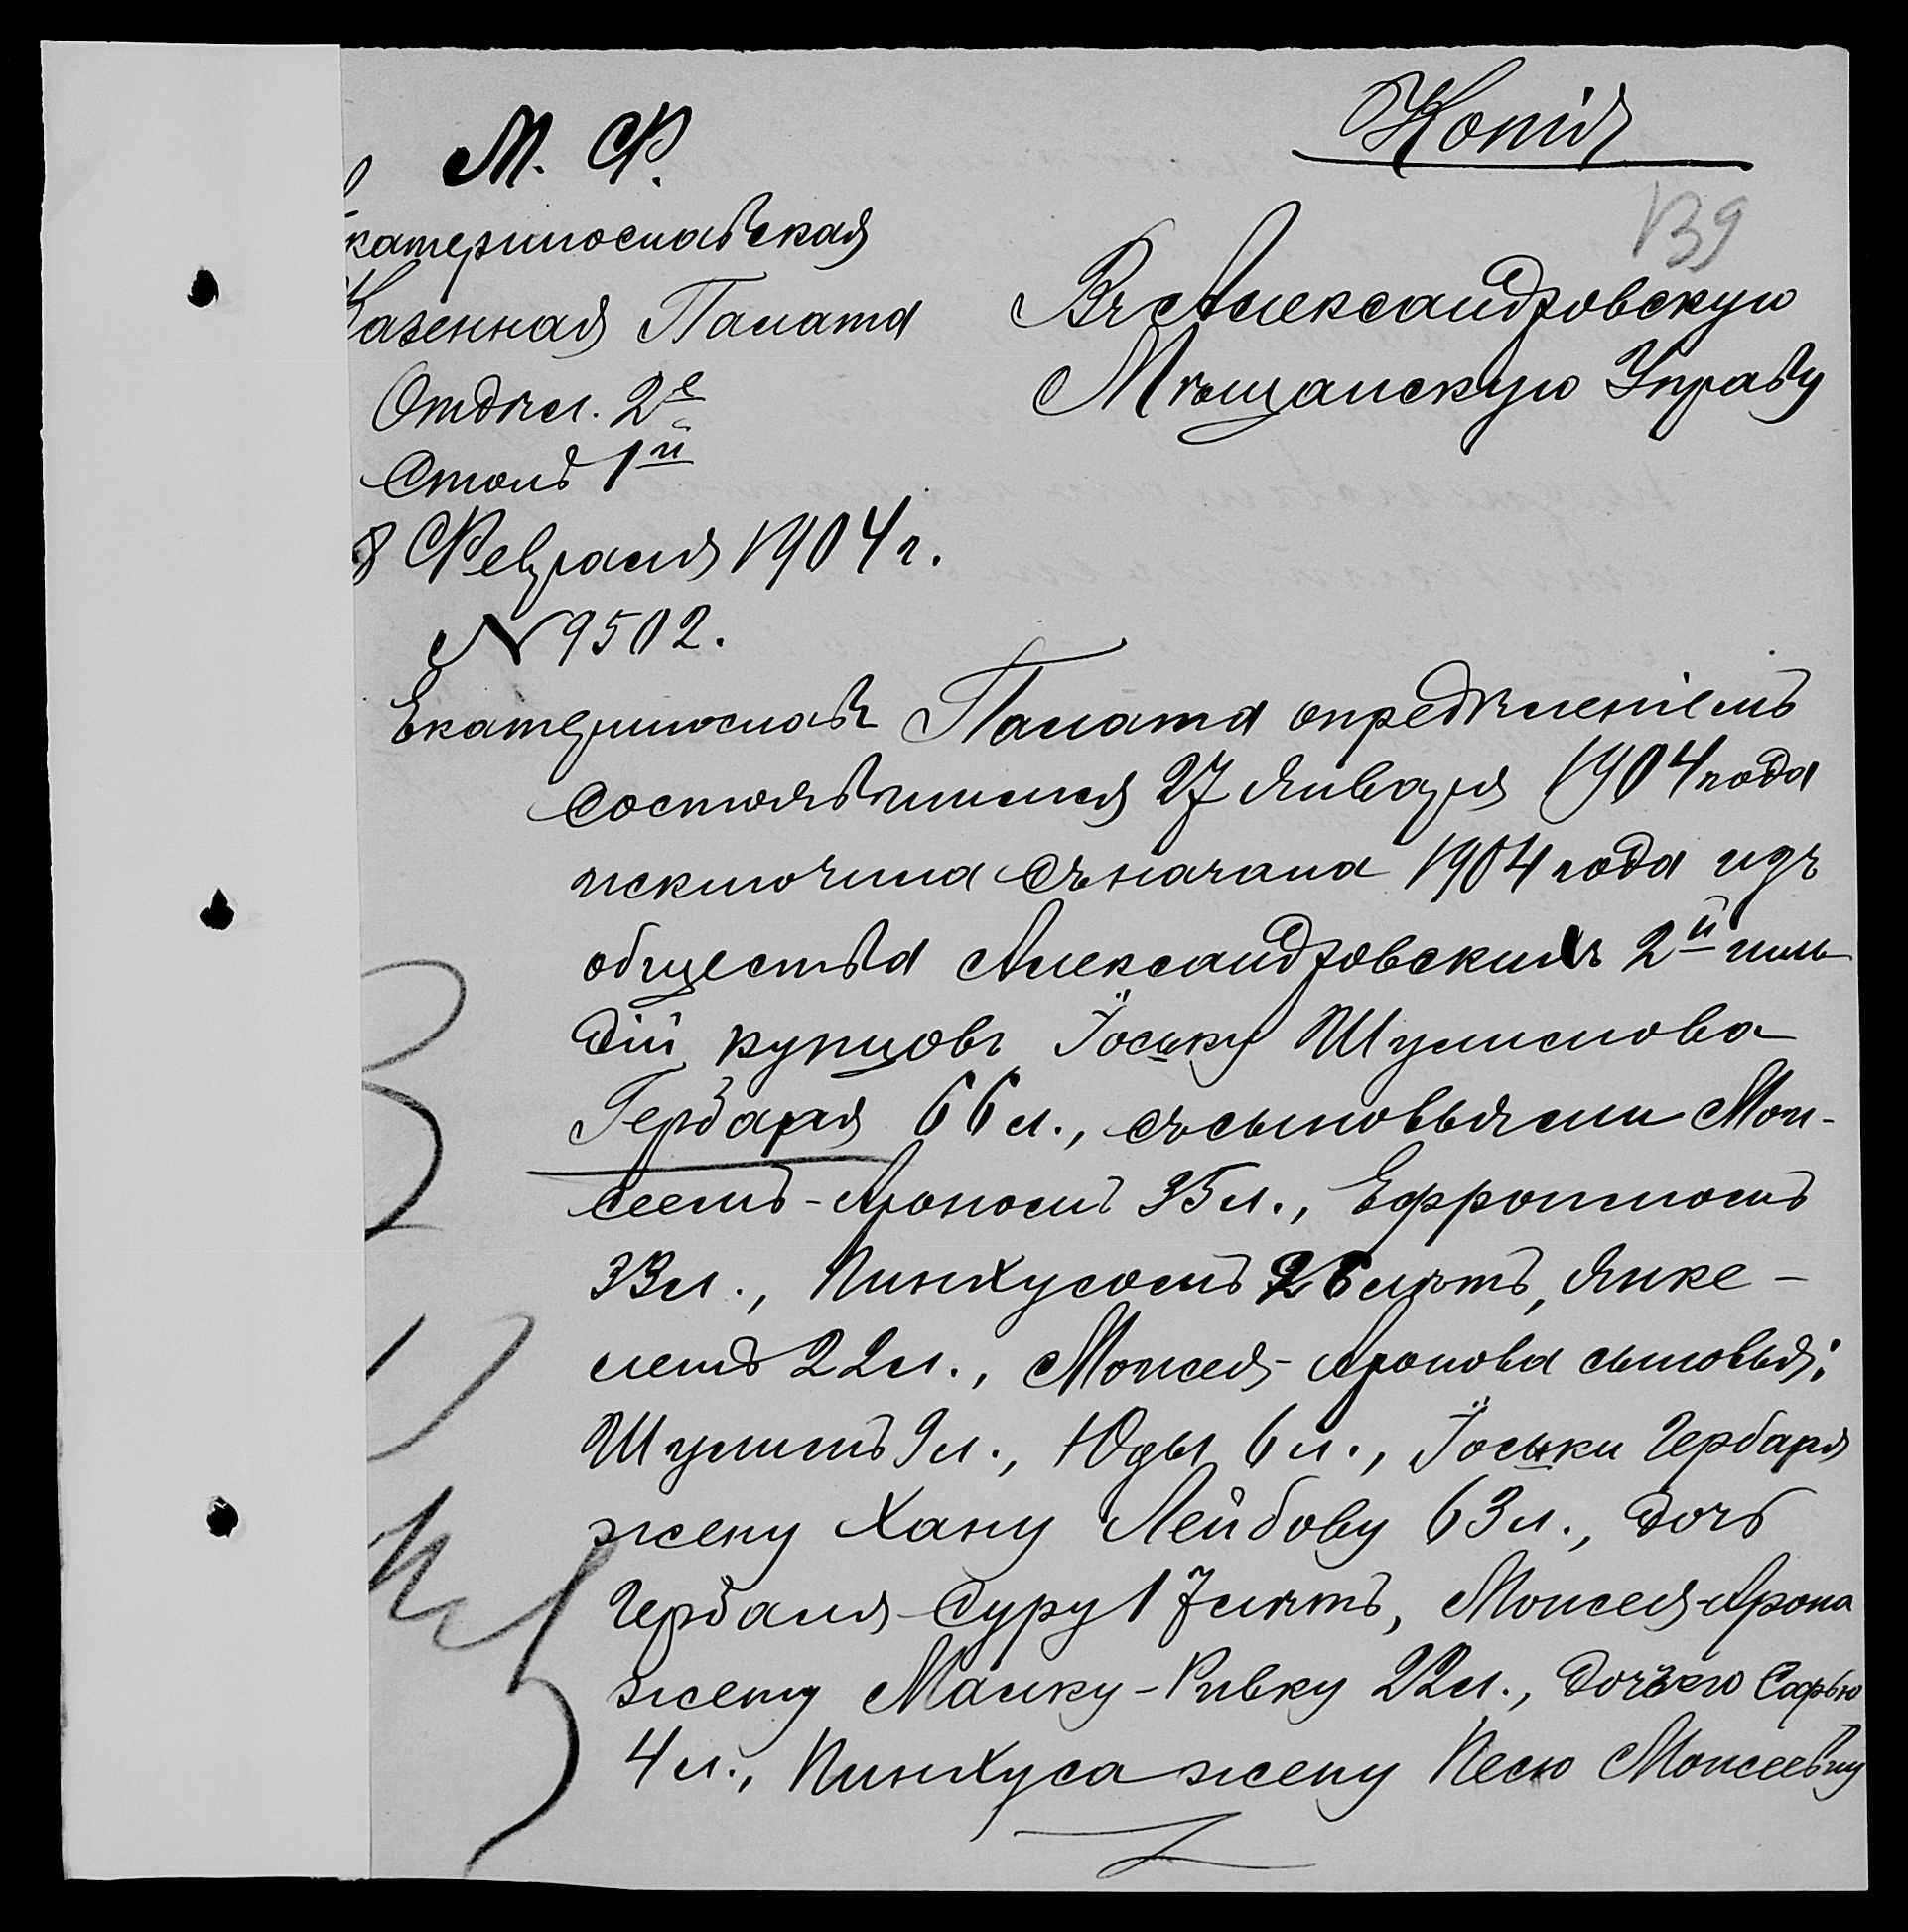 Копія
М. Ф.
139
Екатеринославская
Казенная Палата
Въ Александровскую
Мѣщанскую Управу
Отдѣл. 2е
Столъ 1й
8 Февраля 1904 г.
N 9502.
Екатеринослав Палата опредѣленіемъ
состоявшимся 27 Января 1904 года
исключила съ начала 1904 года изъ
общества Александровскихъ 2й гиль
діи купцовъ Іоську Шулимова
Гербаря 66 л., съ сыновьями Мои-
сеемъ-Арономъ 35 л., Ефроимомъ
33 л., Пинхусомъ 26 лѣтъ, Янке-
лемъ 22 л., Моисея-Арона сыновья:
Шулимъ 9 л., Юды 6 л., Іоськи Гербаря
жену Хану Лейбову 63 л., дочь
Гербаля Суру 17 лѣтъ, Моисея-Арона
жену Малку-Ривку 22 л., дочь его Софью
4 л., Пинхуса жену Песю Моисеевну